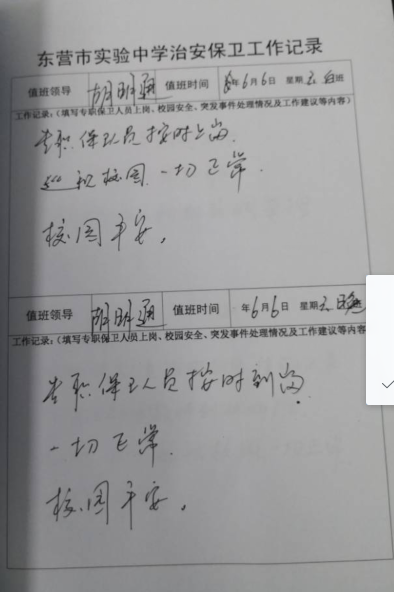 东营市实验中学治安保卫工作记录
值班领导 胡明通 值班时间 年6月6日 星期五 白班
工作记录：（填写专职保卫人员上岗、校园安全、突发事件处理情况及工作建议等内容）
专职保卫人员按时上岗
巡视校园一切正常.
校园平安。
值班领导 胡明通 值班时间 年6月6日 星期五
工作记录：（填写专职保卫人员上岗、校园安全、突发事件处理情况及工作建议等内容
专职保卫人员按时到岗.
一切正常.
校园平安。